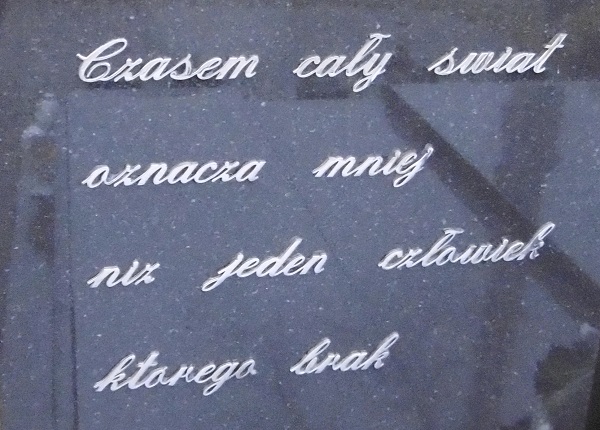 Czasem cały swiat
oznacza mniej
niz jeden człowiek
ktorego brak